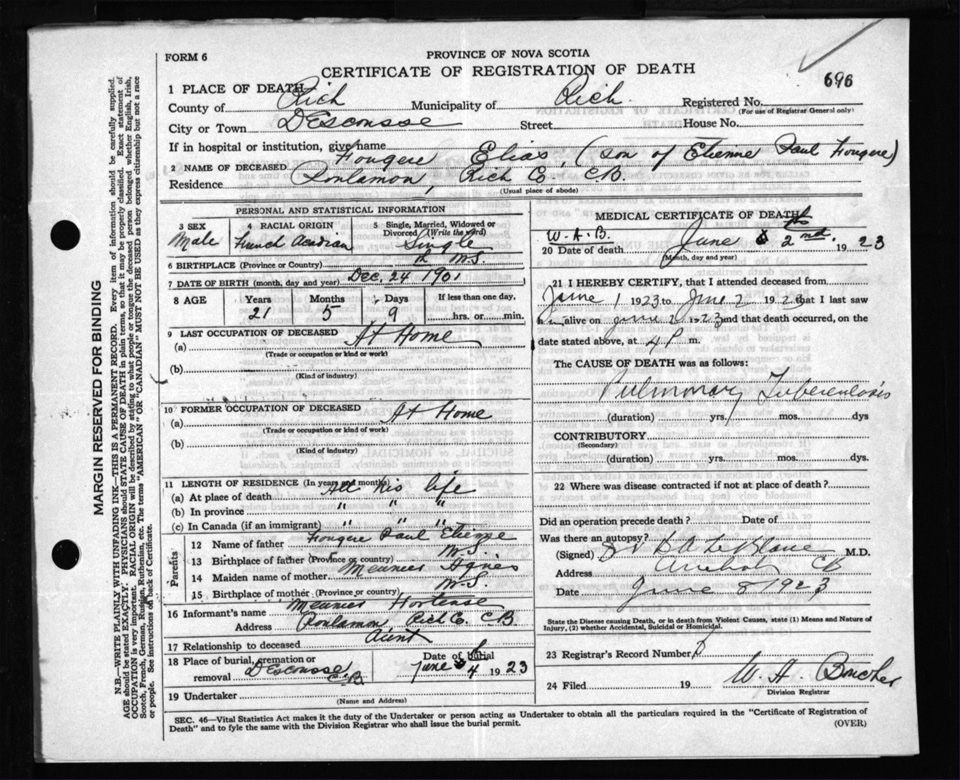 FORM 6
PROVINCE OF NOVA SCOTIA
CERTIFICATE OF REGISTRATION OF DEATH
696
1 PLACE OF DEATH
County of Rich Municipality of Rich. Registered No.
(For use of Registrar General only)
City or Town Descousse Street: House No.
If in hospital or institution, give name
2 NAME OF DECEASED Fougere Elias, (son of Etienne Paul Fougere)
Residence Poulamon, Rich Co. CB.
(Usual place of abode)
PERSONAL AND STATISTICAL INFORMATION
3 SEX 4 RACIAL ORIGIN 5 Single, Married, Widowed or Divorced (Write the word)
Male French Single
6 BIRTHPLACE (Province or Country) N.S.
7 DATE OF BIRTH (month, day and year) Dec. 24 1901
8 AGE Years Months Days If less than one day,
21 5 9 hrs. or min.
9 LAST OCCUPATION OF DECEASED
(a) At Home
(Trade or occupation or kind or work)
(b)
(Kind of industry)
10 FORMER OCCUPATION OF DECEASED
(a) At Home
(Trade or occupation or kind of work)
(b)
(Kind of industry)
11 LENGTH OF RESIDENCE (In years and months)
(a) At place of death All his life
(b) In province " " "
(c) In Canada (if an immigrant) " " "
Parents
12 Name of father Fougere Paul Etienne
13 Birthplace of father (Province or country) N.S.
14 Maiden name of mother Meunier Agnes
15 Birthplace of mother (Province or country) N.S.
16 Informant's name Meunier Hortense
Address Poulamon Rich Co. CB
17 Relationship to deceased Aunt
18 Place of burial, cremation or removal Descousse CB Date of burial June 4 1923
19 Undertaker
(Name and Address)
MEDICAL CERTIFICATE OF DEATH
W.A.B.
20 Date of death June 2nd. 1923
(Month, day and year)
21 I HEREBY CERTIFY, that I attended deceased from
June 1 1923 to June 2 1923 that I last saw
alive on June 2 1923 and that death occurred, on
the date stated above, at 4 P m.
The CAUSE OF DEATH was as follows:
Pulmonary Tuberculosis
(duration) yrs. mos. dys
CONTRIBUTORY.
(Secondary)
(duration) yrs. mos. dys.
22 Where was disease contracted if not at place of death?
Did an operation precede death? Date of
Was there an autopsy?
(Signed) LeBlanc M.D.
Address Arichat CB
Date June 8 1923
State the Disease causing Death, or in death from Violent Causes, state (1) Means and Nature of Injury, (2) whether Accidental, Suicidal or Homicidal.
23 Registrar's Record Number
24 Filed 19 W. A. Boucher
Division Registrar
SEC. 46—Vital Statistics Act makes it the duty of the Undertaker or person acting as Undertaker to obtain all the particulars required in the "Certificate of Registration of
Death" and to fyle the same with the Division Registrar who shall issue the burial permit.
(OVER)
MARGIN RESERVED FOR BINDING
N.B.—WRITE PLAINLY WITH UNFADING INK—THIS IS A PERMANENT RECORD. Every item of information should be carefully supplied.
AGE should be stated EXACTLY. PHYSICIANS should STATE CAUSE OF DEATH in plain terms, so that it may be properly classified. Exact statement of
OCCUPATION is very important. RACIAL ORIGIN will be described by stating to what people or tongue the deceased person belonged whether English, Irish,
Scotch, French, German, Russian, Ruthenian, etc. The terms "AMERICAN" OR "CANADIAN" MUST NOT BE USED as they express citizenship but not a race
or people. See instructions on back of Certificate.